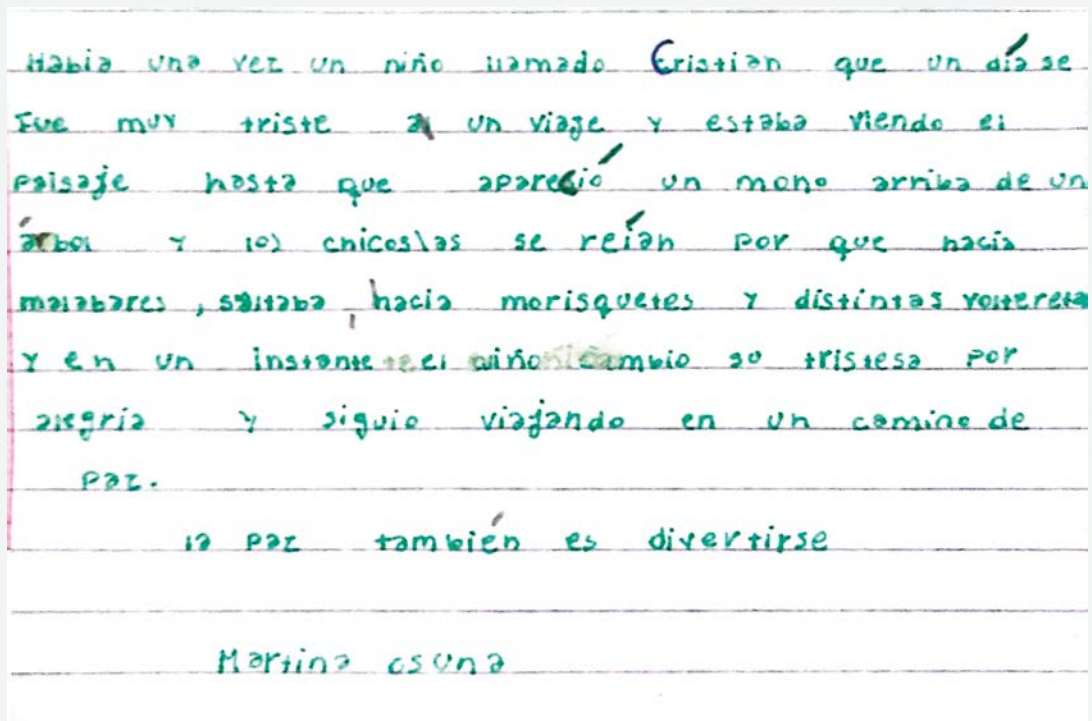 Habia una vez un niño llamado Cristian que un día se
fue muy triste a un viaje y estaba viendo el
paisaje hasta que apareció un mono arriba de un
árbol y los chicos\las se reían por que hacia
malabares, saltaba, hacia morisquetes y distintas volteretas
y en un instante el niño cambio su tristesa por
alegria y siguio viajando en un camino de
paz.
la paz también es divertirse
Martina osuna